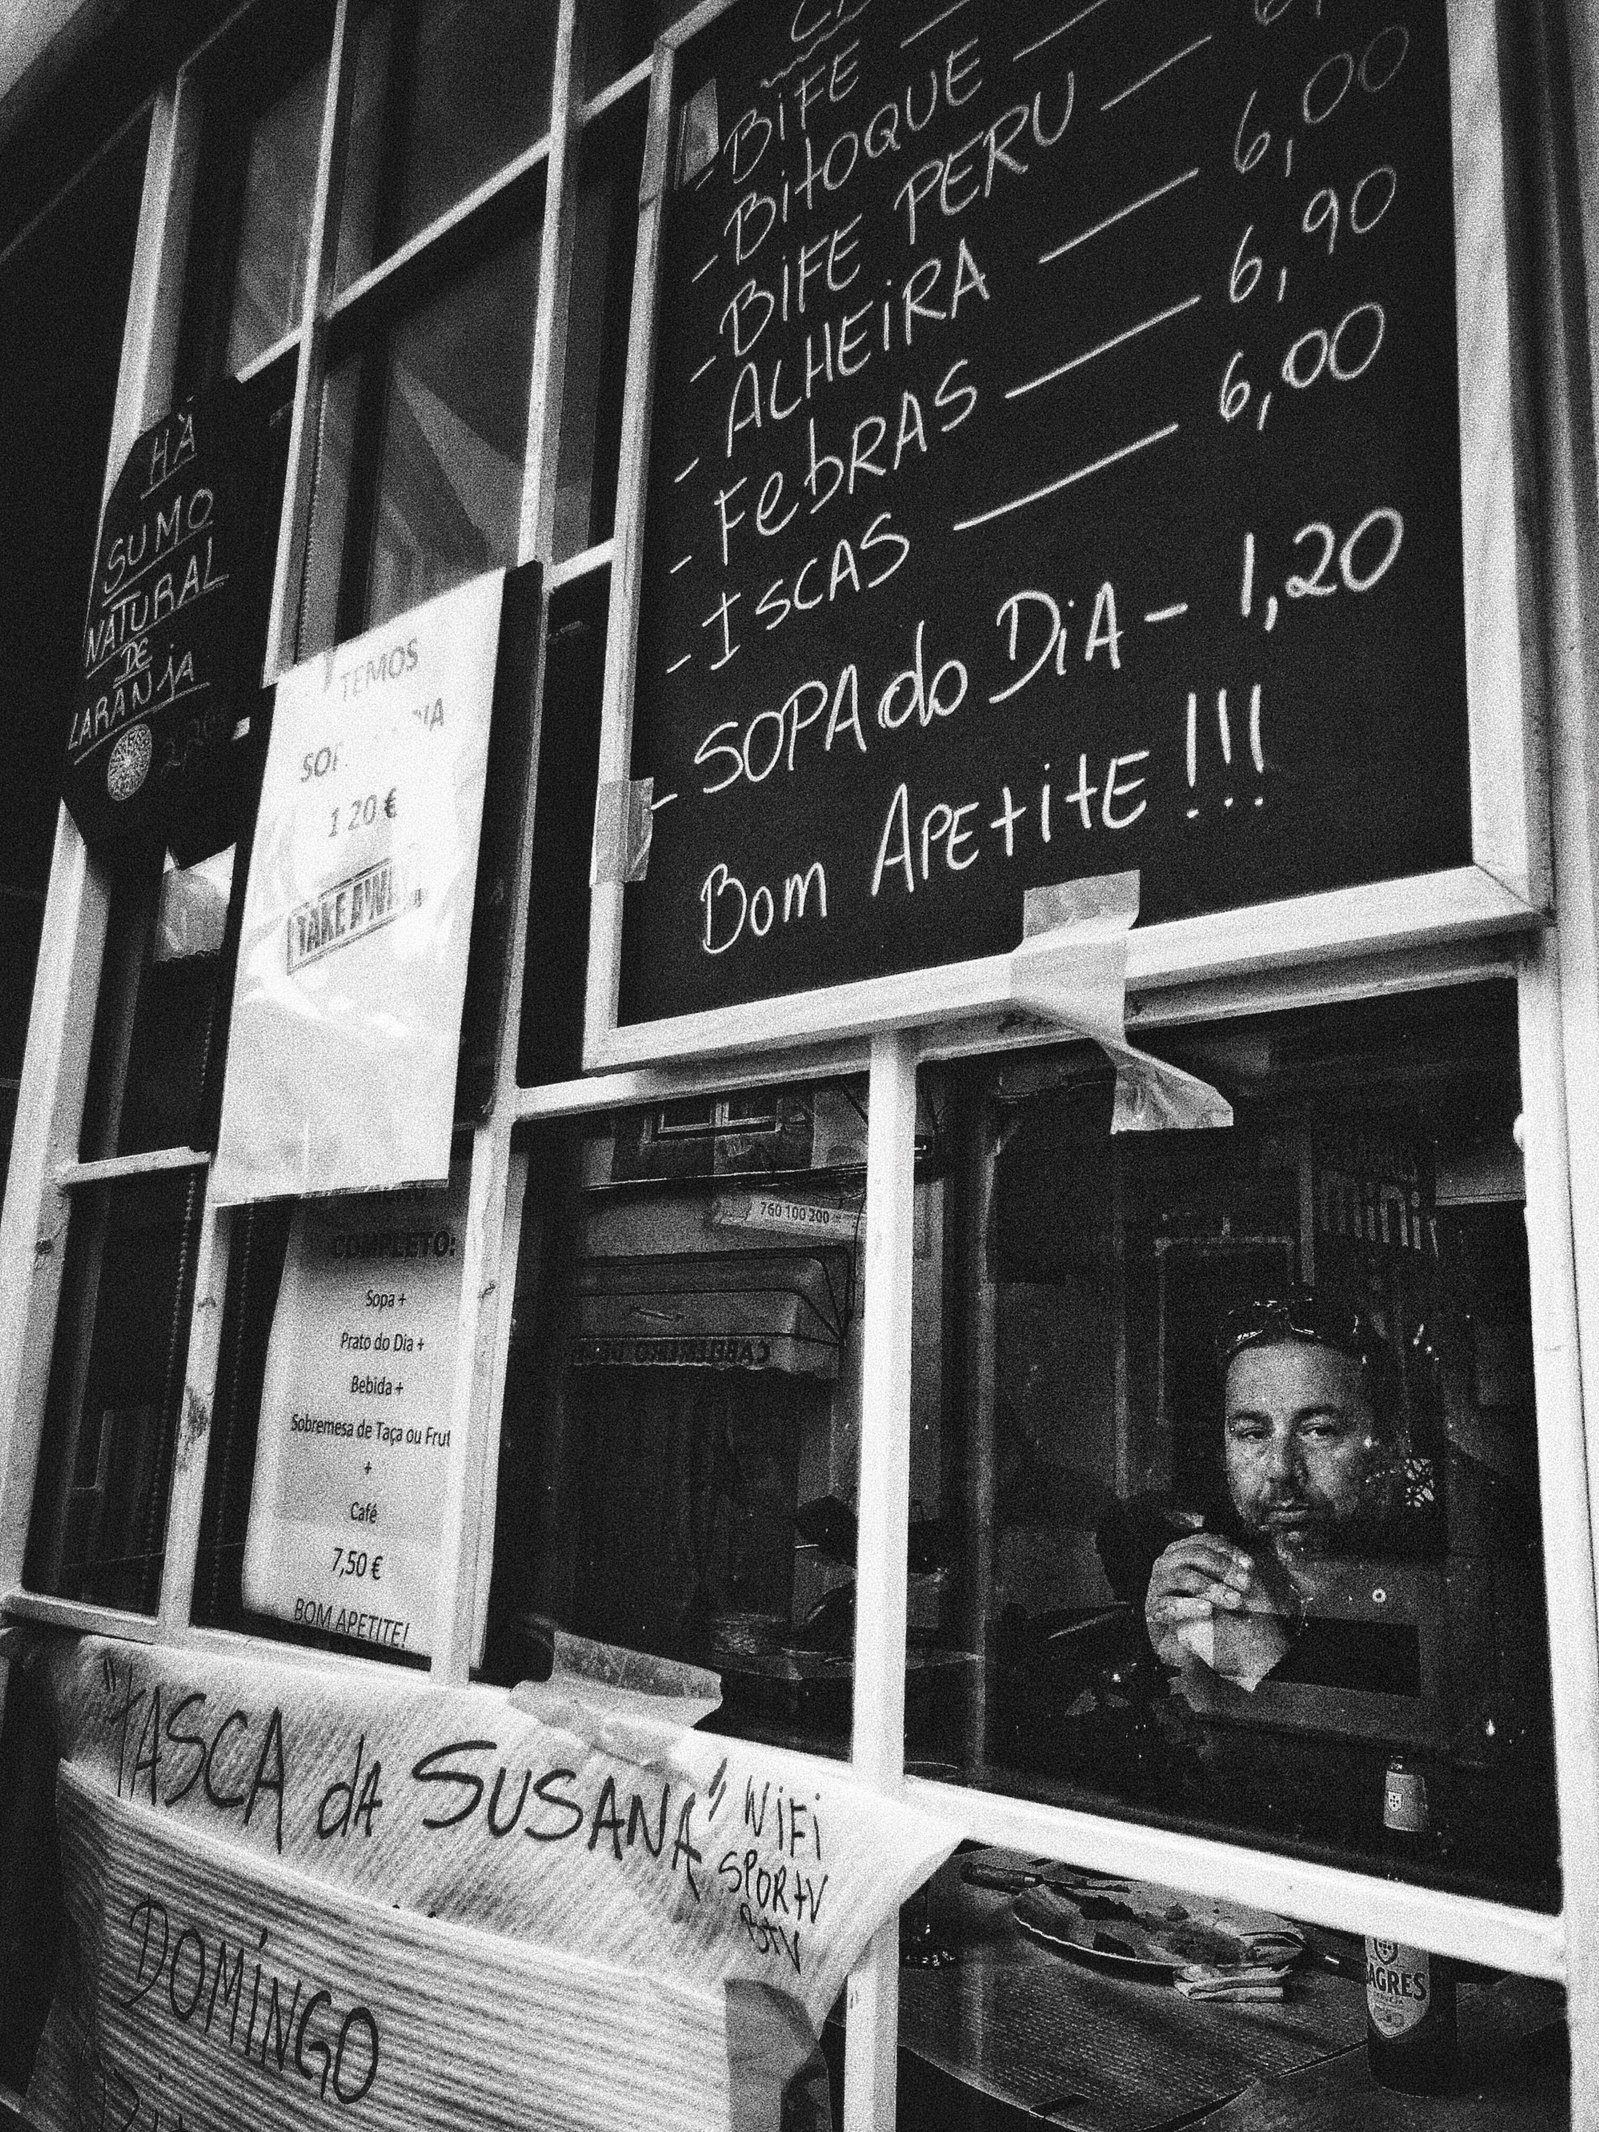 BIFE
- BitOQUE
- BIFE PERU
- ALHEIRA 6,00
- FebRAS 6,90
- ISCAS 6,00
- SOPA do DiA - 1,20
Bom APEtitE !!!
HÀ
SUMO
NATURAL
DE
LARANjA
TEMOS
1 20 €
COMPLETO:
Sopa +
Prato do Dia +
Bebida +
Sobremesa de Taça ou Frut
+
Café
7,50 €
BOM APETITE!
760 100 200
CABELEIREIRO
mini
"tASCA dA SUSANA" WiFi
SPORtV
DOMiNGO
AGRES